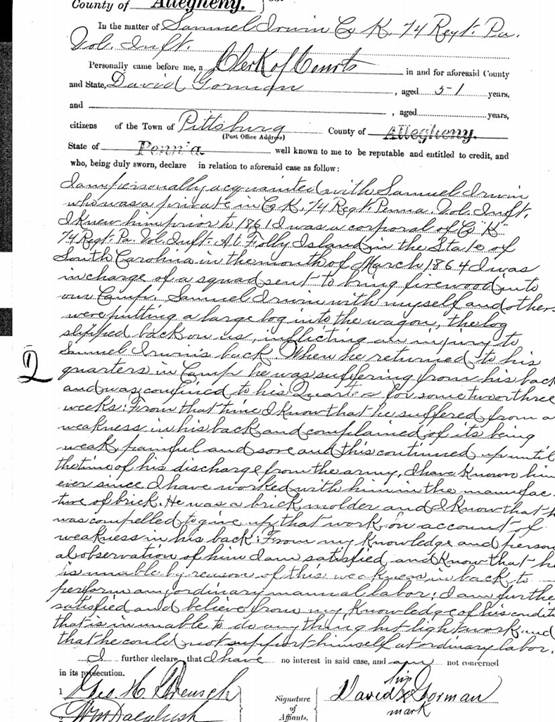 County of Allegheny.
In the matter of Samuel Irwin Co K. 74 Regt. Pa.
Vol. Inft.
Personally came before me, a Clerk of Courts in and for aforesaid County
and State, David Gorman, aged 51 years,
and , aged years,
citizens of the Town of Pittsburg County of Allegheny.
(Post Office Address)
State of Penn'a well known to me to be reputable and entitled to credit, and
who, being duly sworn, declare in relation to aforesaid case as follow:
I am personally acquainted with Samuel Irwin
who was a private in Co K. 74 Regt Penna. Vol. Inft.
I knew him prior to 1861 I was a corporal of Co "K"
74 Regt. Pa. Vol. Inft. At Folly Island in the State of
South Carolina in the month of March 1864 I was
in charge of a squad sent to bring firewood into
our Camp. Samuel Irwin with myself and others
were putting a large log into the wagon, the log
slipped back on us, inflicting an injury to
Samuel Irwin's back. When he returned to his
quarters in Camp he was suffering from his back
and was confined to his Quarters for some two or three
weeks: From that time I know that he suffered from a
weakness in his back and complained of its being
weak, painful and sore and this continued up until
the time of his discharge from the army, I have known him
ever since. I have worked with him in the manufac
ture of brick. He was a brick molder and I know that h
was compelled to give up that work on account of
weakness in his back: From my knowledge and person
al observation of him I am satisfied and know that he
is unable by reason of this weakness in back to
perform any ordinary manual labor; I am further
satisfied and believe from my knowledge of his condit
that is unable to do anything but light work and
that he could not support himself at ordinary labor.
I further declare that I have no interest in said case, and am not concerned
in its prosecution.
1 Geo. H.
Signature
of
Affiants.
his
David X Gorman
mark
Wm